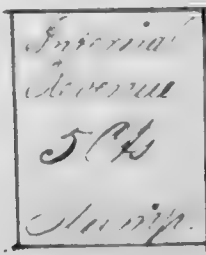 Internal
Revenue
5 Cts
Stamp.